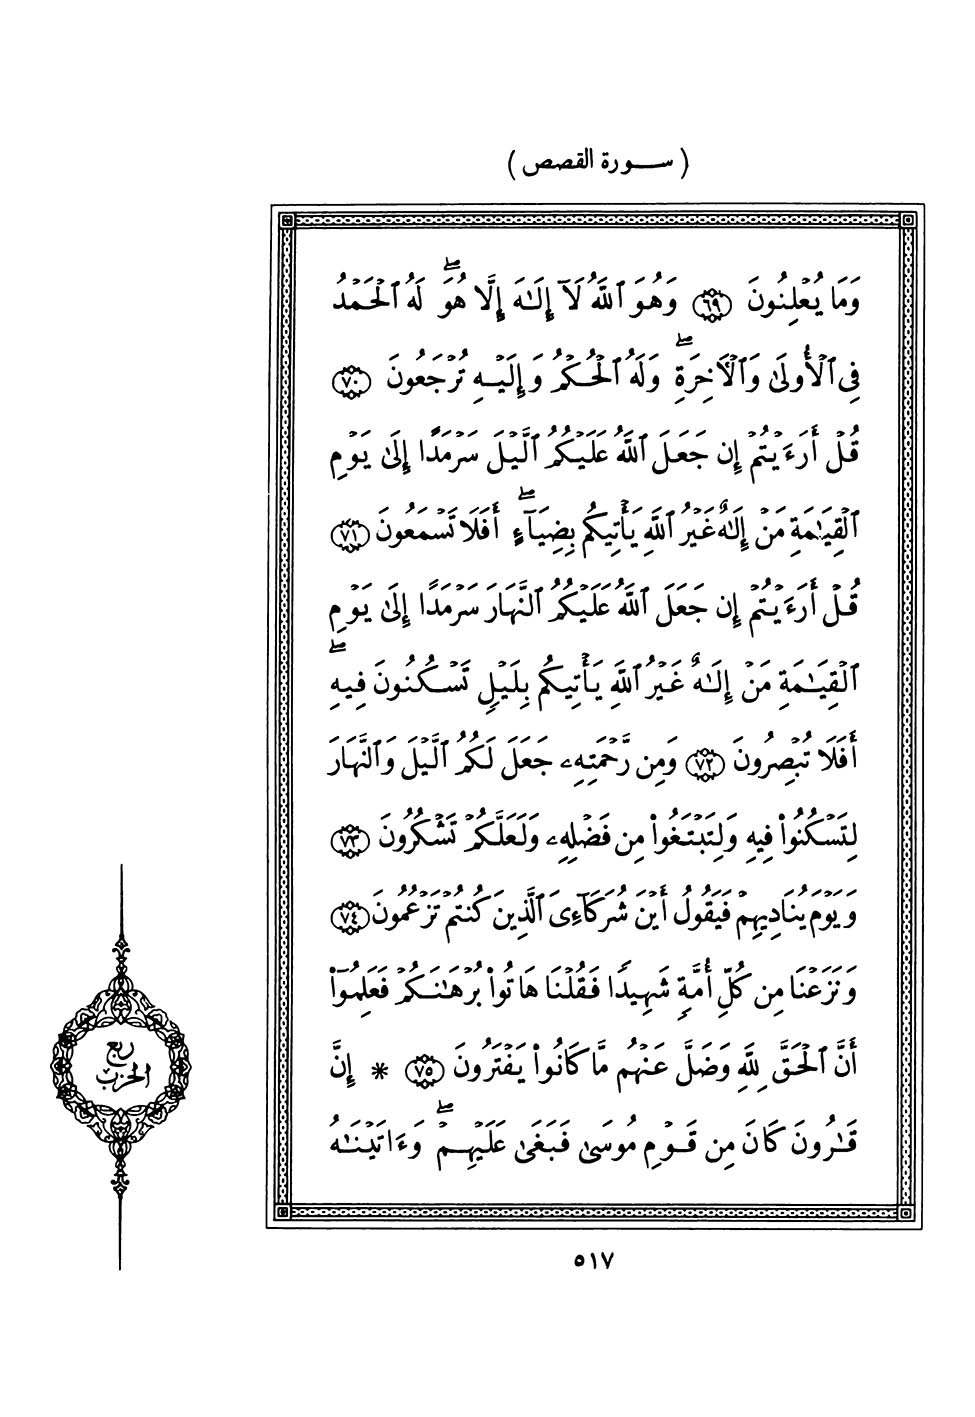 ( ســـورة القصص )
وَمَا يُعْلِنُونَ ٦٩ وَهُوَ ٱللَّهُ لَآ إِلَـٰهَ إِلَّا هُوَۖ لَهُ ٱلْحَمْدُ
فِى ٱلْأُولَىٰ وَٱلْأَخِرَةِۖ وَلَهُ ٱلْحُكْمُ وَإِلَيْهِ تُرْجَعُونَ ٧٠
قُلْ أَرَءَيْتُمْ إِن جَعَلَ ٱللَّهُ عَلَيْكُمُ ٱلَّيْلَ سَرْمَدًا إِلَىٰ يَوْمِ
ٱلْقِيَـٰمَةِ مَنْ إِلَـٰهٌ غَيْرُ ٱللَّهِ يَأْتِيكُم بِضِيَآءٍۖ أَفَلَا تَسْمَعُونَ ٧١
قُلْ أَرَءَيْتُمْ إِن جَعَلَ ٱللَّهُ عَلَيْكُمُ ٱلنَّهَارَ سَرْمَدًا إِلَىٰ يَوْمِ
ٱلْقِيَـٰمَةِ مَنْ إِلَـٰهٌ غَيْرُ ٱللَّهِ يَأْتِيكُم بِلَيْلٍ تَسْكُنُونَ فِيهِۖ
أَفَلَا تُبْصِرُونَ ٧٢ وَمِن رَّحْمَتِهِۦ جَعَلَ لَكُمُ ٱلَّيْلَ وَٱلنَّهَارَ
لِتَسْكُنُوا۟ فِيهِ وَلِتَبْتَغُوا۟ مِن فَضْلِهِۦ وَلَعَلَّكُمْ تَشْكُرُونَ ٧٣
وَيَوْمَ يُنَادِيهِمْ فَيَقُولُ أَيْنَ شُرَكَآءِىَ ٱلَّذِينَ كُنتُمْ تَزْعُمُونَ ٧٤
وَنَزَعْنَا مِن كُلِّ أُمَّةٍ شَهِيدًا فَقُلْنَا هَاتُوا۟ بُرْهَـٰنَكُمْ فَعَلِمُوٓا۟
أَنَّ ٱلْحَقَّ لِلَّهِ وَضَلَّ عَنْهُم مَّا كَانُوا۟ يَفْتَرُونَ ٧٥ * إِنَّ
قَـٰرُونَ كَانَ مِن قَوْمِ مُوسَىٰ فَبَغَىٰ عَلَيْهِمْۖ وَءَاتَيْنَـٰهُ
ربع
الحزب
٥١٧